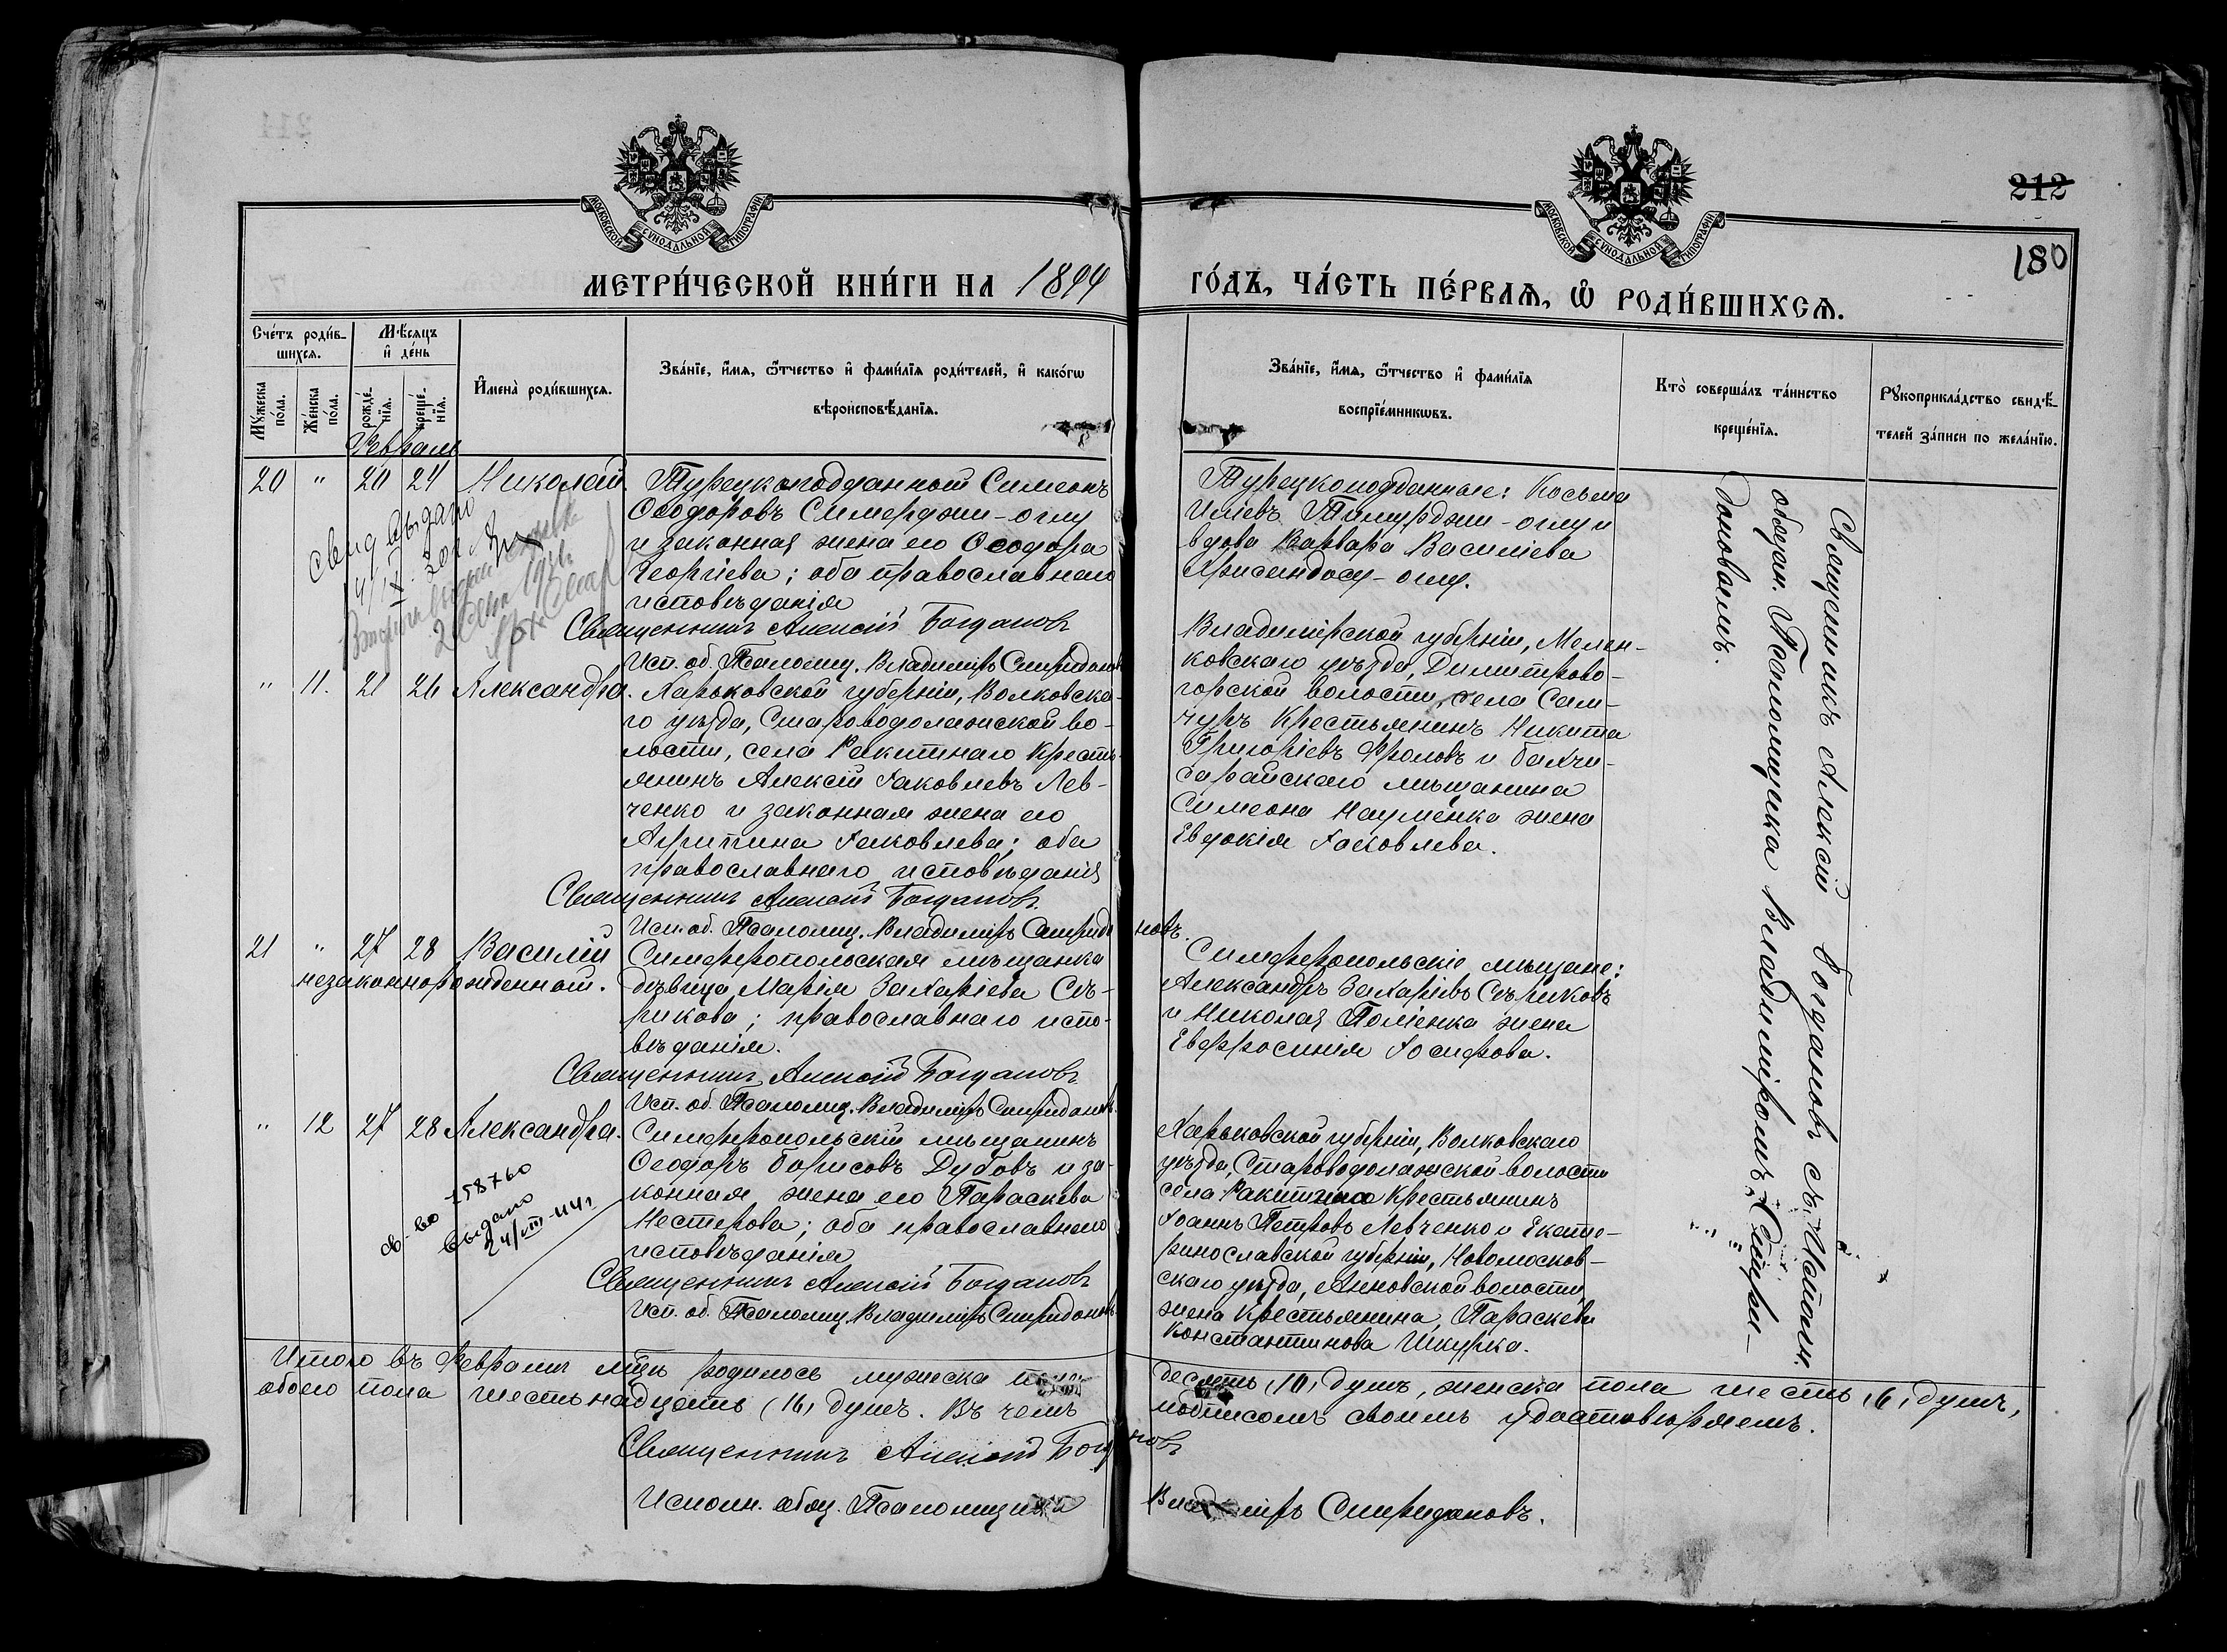 212
180
МОСКОВСКОЙ СѴНОДАЛЬНОЙ ТИПОГРАФІИ
МОСКОВСКОЙ СѴНОДАЛЬНОЙ ТИПОГРАФІИ
МЕТРИ́ЧЕСКОЙ КНИ́ГИ НА 1899
ГО́ДЪ, ЧА́СТЬ ПЕ́РВАѦ, Ѽ РОДИ́ВШИХСѦ.
Сче́тъ роди́в-
шихсѧ.
Мѣ́сѧцъ
и҆ де́нь
Мꙋ́жеска по́ла.
Же́нска по́ла.
рожде́-нїѧ.
креще́-нїѧ.
И҆мена̀ роди́вшихсѧ.
Зва́нїе, и҆́мѧ, ѻ҆́тчество и҆ фами́лїѧ роди́телей, и҆ како́гѡ
вѣроисповѣ́данїѧ.
Зва́нїе, и҆́мѧ, ѻ҆́тчество и҆ фами́лїѧ
воспрїе́мникѡвъ.
Кто̀ соверша́лъ та́инство
креще́нїѧ.
Рꙋкоприкла́дство свидѣ́-
телей за́писи по жела́нїю.
Февраль
20 " 20 24 Николай. Турецкоподданный Симеонъ
Ѳеодоровъ Симерджи-оглу
и законная жена его Ѳеодора
Георгіева; оба православнаго
исповѣданія
Священникъ Алексій Богдановъ
Исп. об. Псаломщ. Владиміръ Спиридоновъ
свид выдано
Турецкоподданные: Косьма
Иліевъ Тимурджи-оглу и
вдова Варвара Василіева
оглу.
" 11. 21 26 Александра. Харьковской губерніи, Волковска-
го уѣзда, Староводолажской во-
лости, села Ракитнаго Кресть-
янинъ Алексій Іаковлевъ Лев-
ченко и законная жена его
Агрипина Іаковлева; оба
православнаго исповѣданія
Священникъ Алексій Богдановъ.
Исп. об. Псаломщ. Владиміръ Спиридоновъ.
Владимірской губерніи, Мелен-
ковскаго уѣзда, Димитрово-
горской волости, села Сан-
чуръ Крестьянинъ Никита
Григоріевъ Фроловъ и бахчи-
сарайскаго мѣщанина
Симеона Науменка жена
Евдокія Іаковлева.
21 " 27 28 Василій
незаконнорожденный.
Симферопольская мѣщанка
дѣвица Марія Захаріева Сѣ-
рикова; православнаго испо-
вѣданія.
Священникъ Алексій Богдановъ
Исп. об. Псаломщ. Владиміръ Спиридоновъ.
Симферопольскіе мѣщане:
Александръ Захаріевъ Сѣриковъ
и Николая Поліенка жена
Евфросинія Іосифова.
" 12 27 28 Александра. Симферопольскій мѣщанинъ
Ѳеодоръ Борисовъ Дубовъ и за-
конная жена его Параскева
Нестерова; оба православнаго
исповѣданія
Священникъ Алексій Богдановъ
Исп. об. Псаломщ. Владиміръ Спиридоновъ.
св-во 258760
выдано
24/VIII-44 г
Харьковской губерніи, Волковскаго
уѣзда, Староводолажской волости
села Ракитнаго Крестьянинъ
Іоаннъ Петровъ Левченко и Екате-
ринославской губерніи, Новомосков-
скаго уѣзда, Анновской волости,
жена крестьянина, Параскева
Константинова Шкурка.
Священникъ Алексій Богдановъ съ Исполн.
обязан. Псаломщика Владиміромъ Спири-
доновымъ.
Итого въ Февралѣ м͠цѣ родилось мужеска пола десять (10) душъ, женска пола шесть (6) душъ,
обоего пола шестьнадцать (16) душъ. Въ чемъ подписомъ своимъ удостовѣряемъ.
Священникъ Алексій Богдановъ
Исполн. обяз. Псаломщика Владиміръ Спиридоновъ.